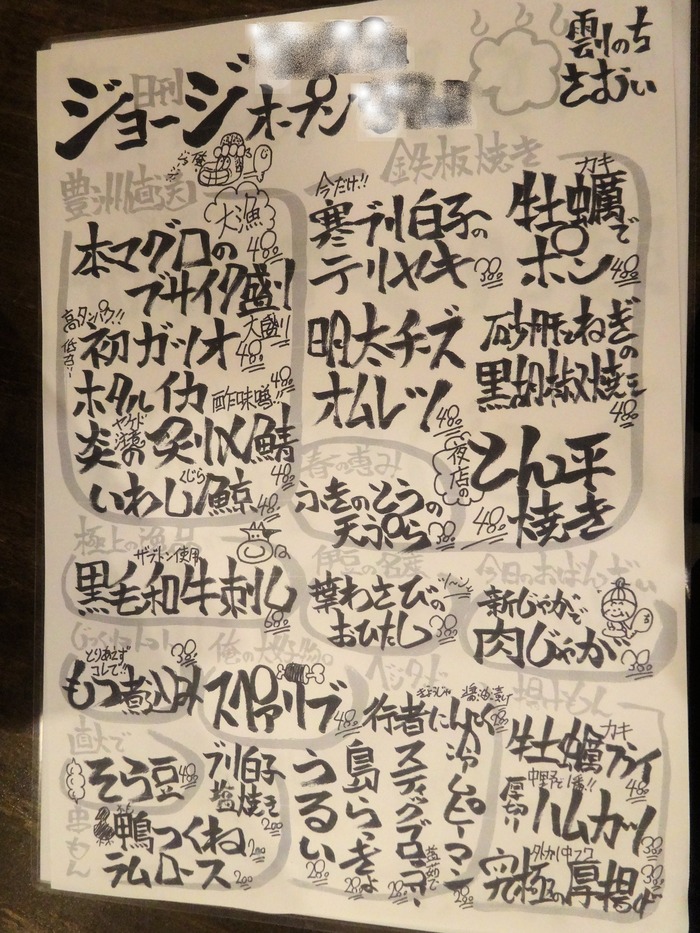 日刊
ジョージ オープン
豊洲直送
大漁
本マグロの
ブサイク盛り 480
高タンパク!!
低カロリー
大盛り
初ガツオ 480
ホタルイカ 酢味噌!! 480
炙り〆鯖 480
いわし/鯨 480
くじら
鉄板焼き
今だけ!!
寒ブリ白子の
テリヤキ 380
カキ
牡蠣で
ポン 480
明太チーズ
オムレツ 480
砂肝とねぎの
黒胡椒焼き 480
夜店の
とん平
焼き 480
春の恵み
ふきのとうの
天ぷら 380
ザブトン使用
黒毛和牛刺し 680
伊豆の名産
葉わさびの
おひたし 380
今日のおばんざい
新じゃがで
肉じゃが 380
とりあえず
コレで!!
もつ煮込み 380
俺の大好物。
スペアリブ 480
ベジタブ
ぎょうじゃ
醤油漬け
行者にんにく 280
冷やしピーマン 280
スティックブロッコリー
島らっきょ 280
うるい 280
直火で
そら豆 480
串もん
ブリ白子
塩焼き 200
鴨つくね 200
ラムロース 200
揚げもん
カキ
牡蠣フライ 480
中野で1番!!
厚切り
ハムカツ 380
外カリ中フワ
究極の厚揚げ 380